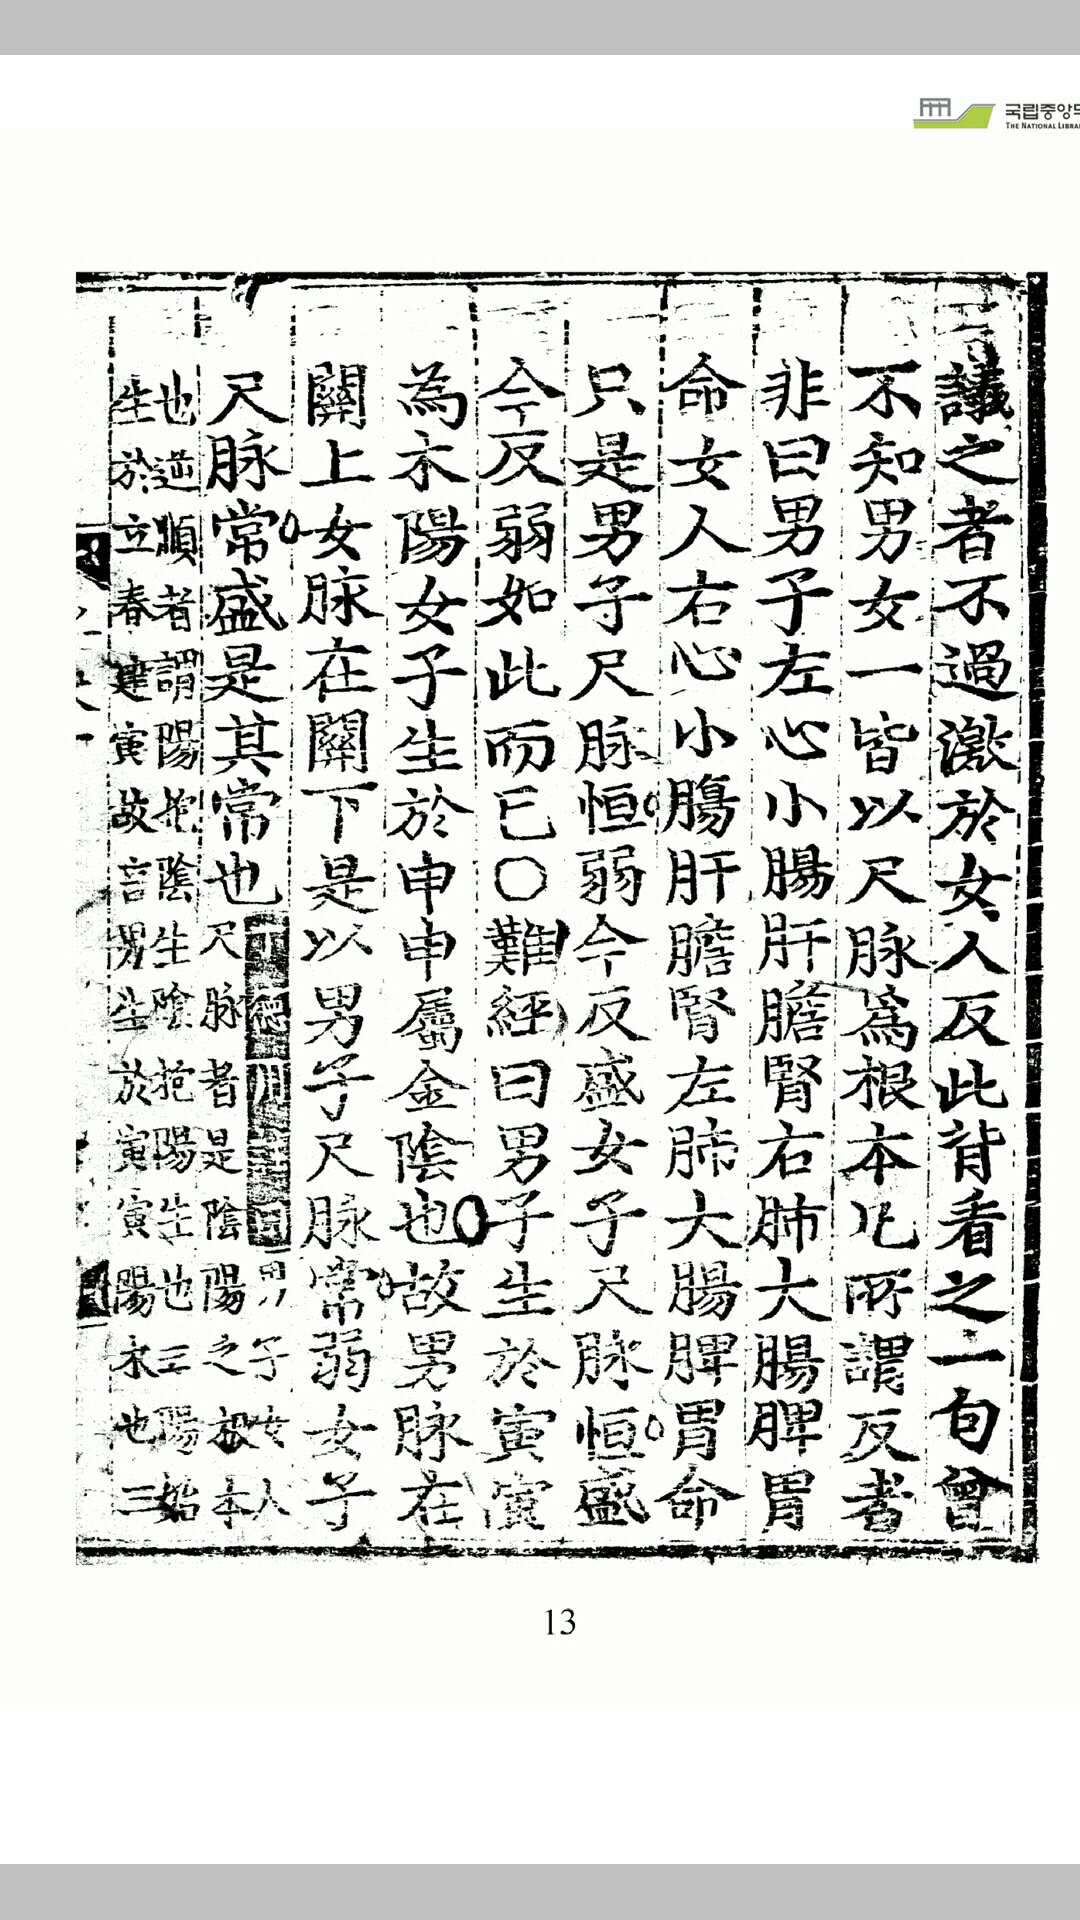 국립중앙도
THE NATIONAL LIBRAR
議之者不過激於女人反此背看之一句曾
不知男女一皆以尺脉爲根本凡所謂反者
非曰男子左心小腸肝膽腎右肺大腸脾胃
命女人右心小腸肝膽腎左肺大腸脾胃命
只是男子尺脉恒弱今反盛女子尺脉恒盛
今反弱如此而已○難經曰男子生於寅寅
為木陽女子生於申申屬金陰也故男脉在
關上女脉在關下是以男子尺脉常弱女子
尺脉常盛是其常也
丁德用註曰男子女人
尺脉者是陰陽之根本
也逆順者謂陽抱陰生陰抱陽生也三陽始
生於立春建寅故言男生於寅寅陽木也三
13